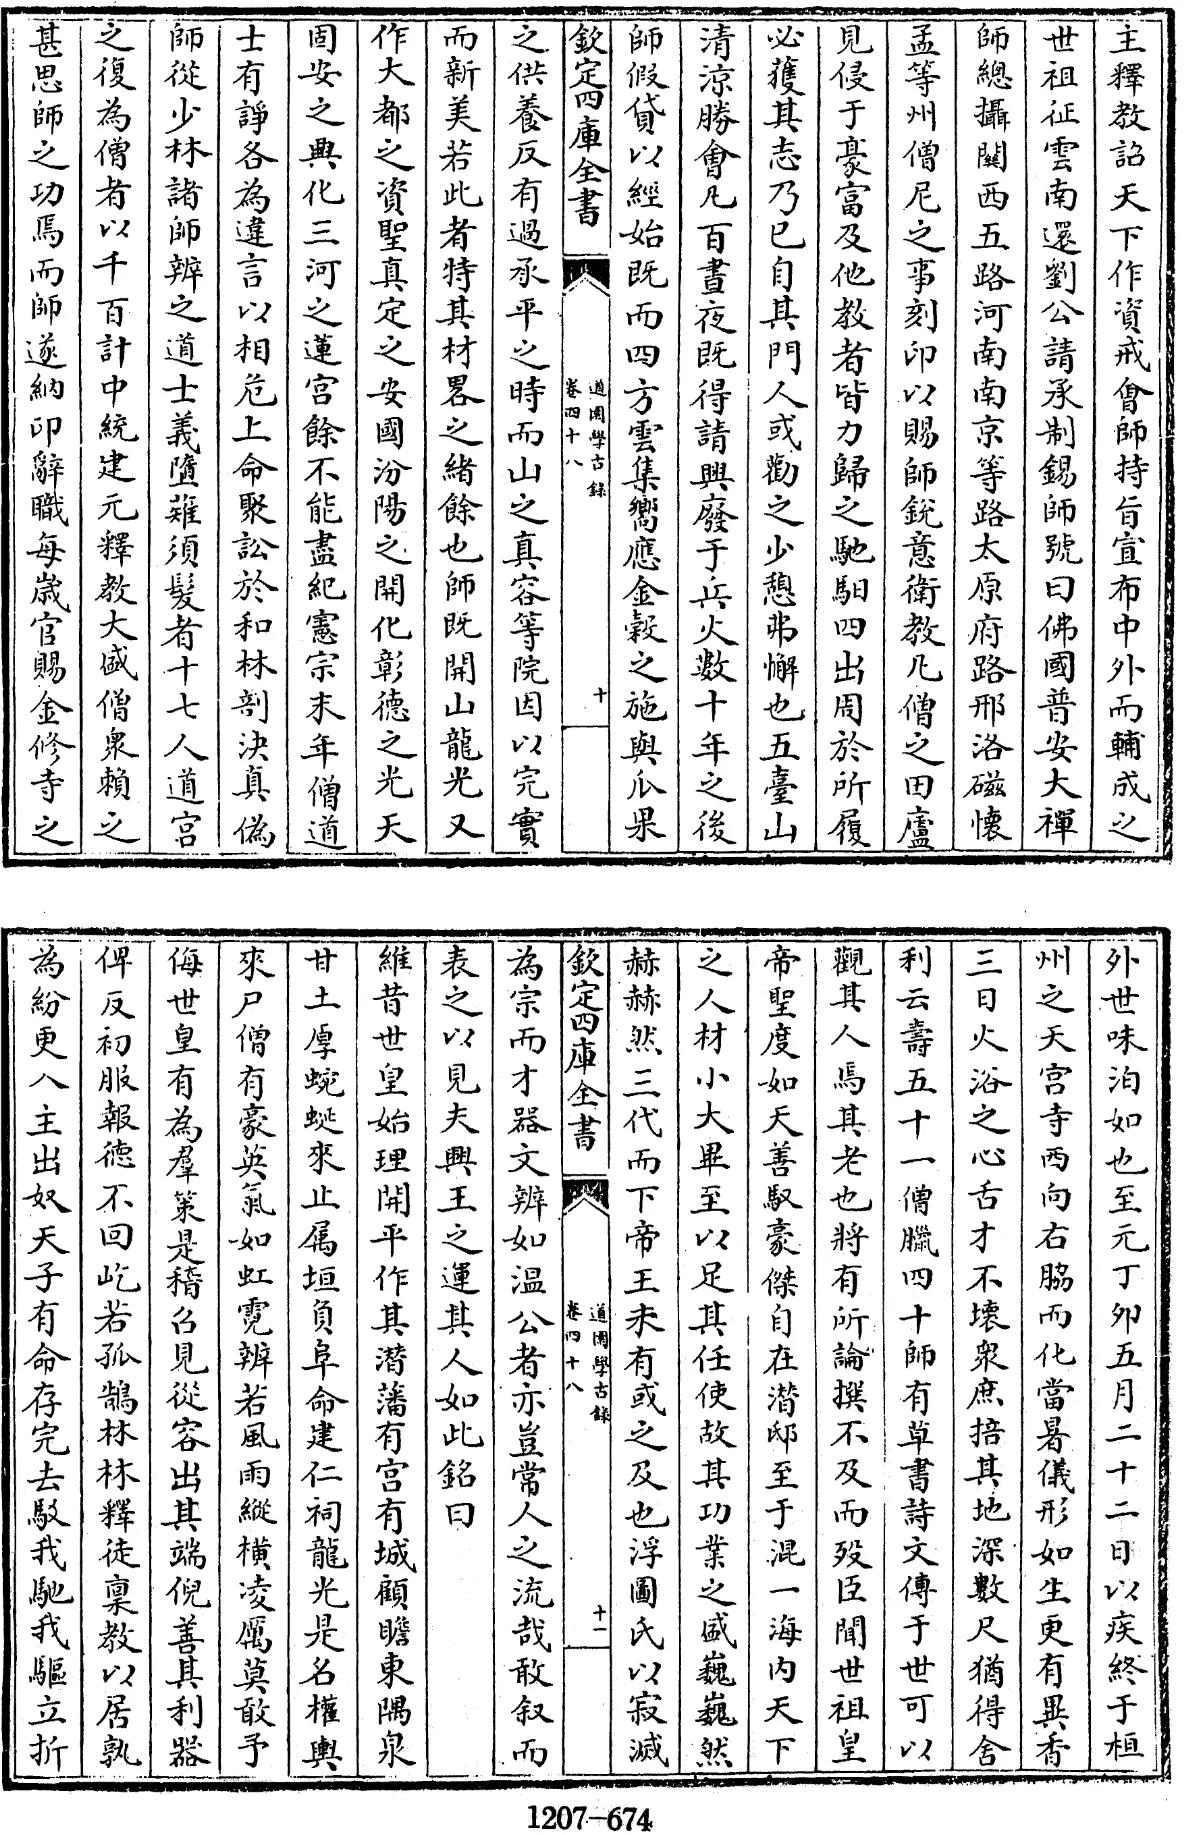 主釋教詔天下作資戒㑹師持㫖宣布中外而輔成之
世祖征雲南還劉公請承制錫師號曰佛國普安大禪
師總攝關西五路河南南京等路太原府路邢洺磁懷
孟等州僧尼之事刻印以賜師銳意衛教凡僧之田廬
見侵于豪富及他教者皆力歸之馳馹四出周於所履
必獲其志乃已自其門人或勸之少憩弗懈也五臺山
清涼勝㑹凡百晝夜既得請興廢于兵火數十年之後
師假貸以經始既而四方雲集嚮應金穀之施與瓜果
欽定四庫全書
道園學古錄
卷四十八
十
之供養反有過承平之時而山之真容等院因以完實
而新美若此者特其材畧之緒餘也師既開山龍光又
作大都之資聖真定之安國汾陽之開化彰德之光天
固安之興化三河之蓮宮餘不能盡紀憲宗末年僧道
士有諍各為違言以相危上命聚訟於和林剖決真偽
師從少林諸師辨之道士義墮薙須髮者十七人道宮
之復為僧者以千百計中統建元釋教大盛僧衆賴之
甚思師之功焉而師遂納印辭職每嵗官賜金修寺之
外世味泊如也至元丁卯五月二十二日以疾終于桓
州之天宮寺西向右脇而化當暑儀形如生更有異香
三日火浴之心舌才不壊衆庶掊其地深數尺猶得舍
利云壽五十一僧臘四十師有草書詩文傳于世可以
觀其人焉其老也將有所論撰不及而歿臣聞世祖皇
帝聖度如天善馭豪傑自在潛邸至于混一海内天下
之人材小大畢至以足其任使故其功業之盛巍巍然
赫赫然三代而下帝王未有或之及也浮圖氏以寂滅
欽定四庫全書
道園學古錄
卷四十八
十一
為宗而才器文辨如温公者亦豈常人之流哉敢叙而
表之以見夫興王之運其人如此銘曰
維昔世皇始理開平作其潛藩有宮有城顧瞻東隅泉
甘土厚蜿蜒來止屬垣負阜命建仁祠龍光是名權輿
來尸僧有豪英氣如虹霓辨若風雨縱橫凌厲莫敢予
侮世皇有為羣策是稽召見從容出其端倪善其利器
俾反初服報德不回屹若孤鵠林林釋徒稟教以居孰
為紛更入主出奴天子有命存完去駁我馳我驅立折
1207-674